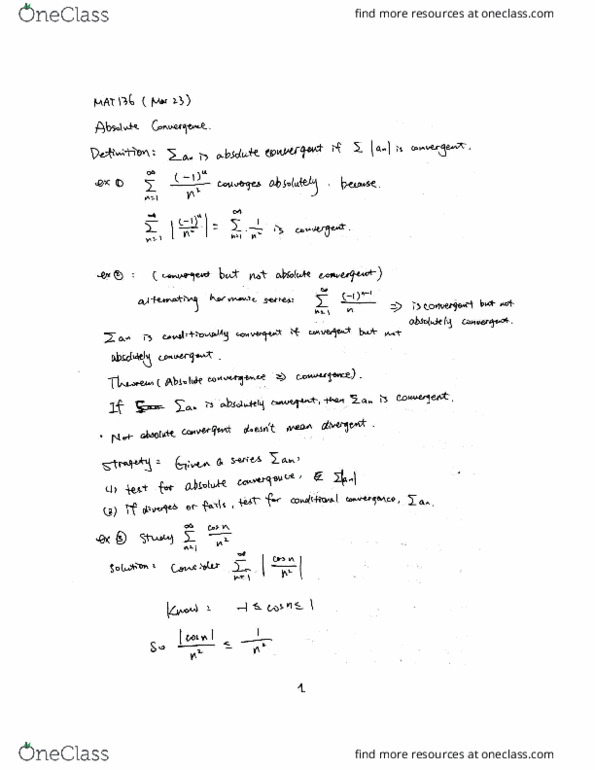 OneClass
find more resources at oneclass.com
MAT136 (Mar 23)
Absolute Convergence.
Definition: Σan is absolute convergent if Σ |an| is convergent.
ex ① ∞ Σ n=1 (-1)^n / n² converges absolutely. because.
∞ Σ n=1 |(-1)^n / n²| = ∞ Σ n=1 1/n² is convergent.
ex ②: (convergent but not absolute convergent)
alternating harmonic series: ∞ Σ n=1 (-1)^n-1 / n ⇒ is convergent but not
absolutely convergent.
Σan is conditionally convergent if convergent but not
absolutely convergent.
Theorem (Absolute convergence ⇒ convergence).
If Σan is absolutely convegent, then Σan is convergent.
· Not absolute convergent doesn't mean divergent.
Stragety: Given a series Σan,
(1) test for absolute convergence, Σ|an|
(2) if diverges or fails, test for conditional convergence, Σan.
ex ③ Study ∞ Σ n=1 cos n / n²
Solution: Consider ∞ Σ n=1 |cos n / n²|
Know: -1 ≤ cos n ≤ 1
So |cos n| / n² ≤ 1 / n²
1
OneClass
find more resources at oneclass.com